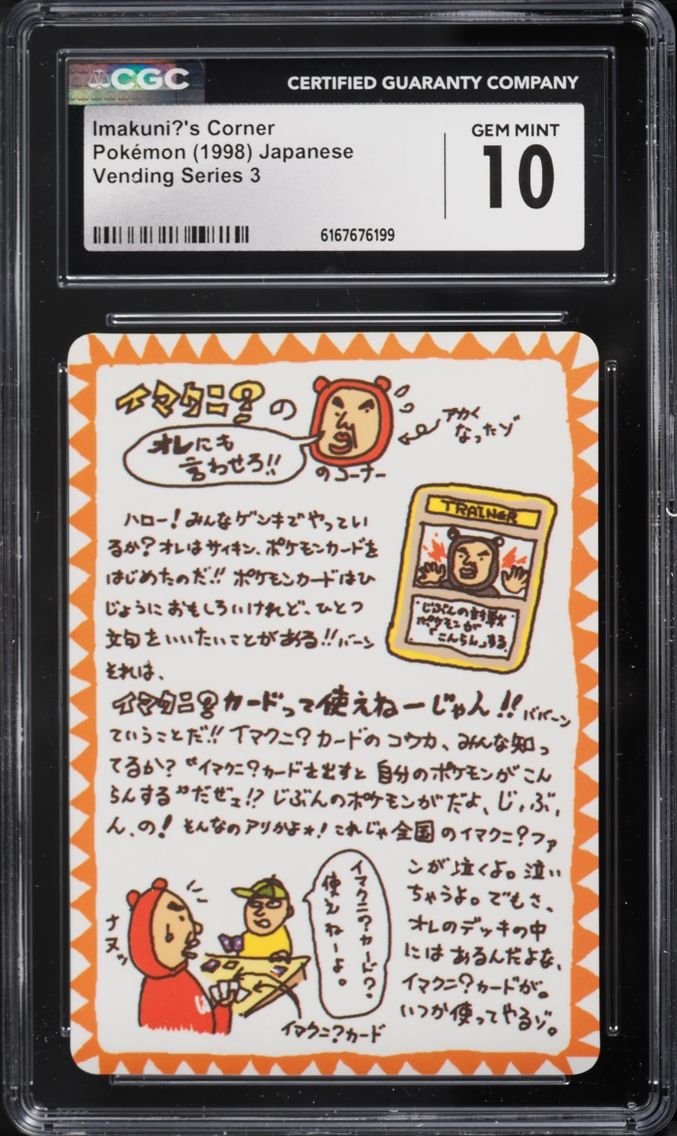 CGC
CERTIFIED GUARANTY COMPANY
Imakuni?'s Corner
Pokémon (1998) Japanese
Vending Series 3
GEM MINT
10
6167676199
イマクニ?の
オレにも
言わせろ!!
のコーナー
アカく
なったゾ
TRAINER
じぶんの対戦
ポケモンが
「こんらん」する
ハロー!みんなゲンキでやってい
るか?オレはサイキン、ポケモンカードを
はじめたのだ!!ポケモンカードはひ
じょうにおもしろいけれど、ひとつ
文句をいいたいことがある!!バーン
それは、
イマクニ?カードって使えねーじゃん!!ババーン
ていうことだ!!イマクニ?カードのコウカ、みんな知っ
てるか?“イマクニ?カードを出すと自分のポケモンがこん
らんする”だぜェ!?じぶんのポケモンがだよ、じ,ぶ,
ん、の!そんなのアリかよォ!これじゃ全国のイマクニ?ファ
ンが泣くよ。泣い
ちゃうよ。でもさ、
オレのデッキの中
にはあるんだよな、
イマクニ?カードが。
いつか使ってやるゾ。
ナヌッ
イマクニ?カード?
使えねーよ。
イマクニ?カード